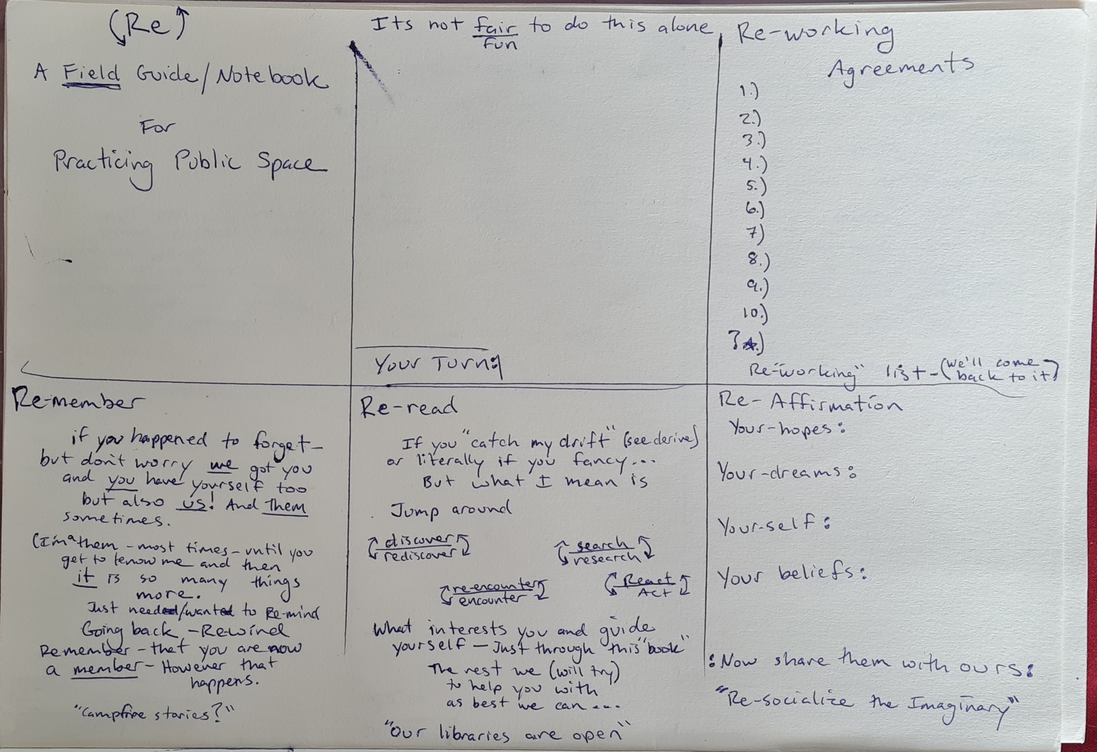 (Re)
A Field Guide/Notebook
For
Practicing Public Space
Its not fair to do this alone
fun
Your Turn:
Re-working
Agreements
1.)
2.)
3.)
4.)
5.)
6.)
7.)
8.)
9.)
10.)
?.)
Re-"working" list - (we'll come
back to it)
Re-member
if you happened to forget -
but don't worry we got you
and you have yourself too
but also us! And Them
sometimes.
(I'm a them - most times - until you
get to know me and then
it is so many things
more.
Just needed/wanted to Re-mind
Going back - Rewind
Remember - that you are now
a member - However that
happens.
"campfire stories?"
Re-read
If you "catch my drift" (see derive)
or literally if you fancy...
But what I mean is
Jump around
discover
rediscover
search
research
re-encounter
encounter
React
Act
What interests you and guide
yourself - Just through this "book"
The rest we (will try)
to help you with
as best we can ...
"Our libraries are open"
Re-Affirmation
Your-hopes:
Your-dreams:
Your-self:
Your beliefs:
:Now share them with ours:
"Re-socialize the Imaginary"